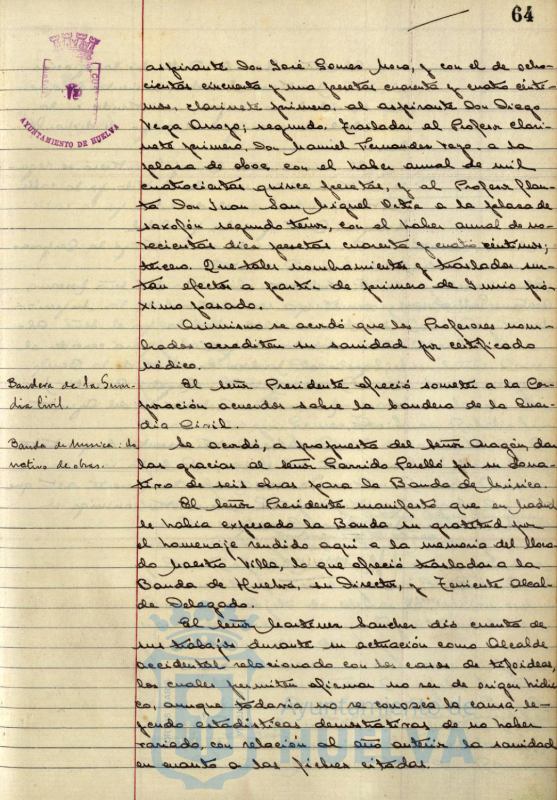 64
AYUNTAMIENTO DE HUELVA
aspirante Don José Gomes Mora, y con el de ocho-
cientas cincuenta y una pesetas cuarenta y cuatro cénti-
mos, clarinete primero, al aspirante Don Diego
Vega Arroyo; segundo, Trasladar al Profesor clari-
nete primero, Don Manuel Fernandez Vega, a la
plaza de oboe, con el haber anual de mil
cuatrocientas quince pesetas, y al Profesor Flau-
ta Don Juan San Miguel a la plaza de
saxofón segundo tenor, con el haber anual de no-
vecientas diez pesetas cuarenta y cuatro céntimos;
tercero. Que tales nombramientos y traslados sur-
tan efectos a partir de primero de Junio pró-
ximo pasado.
Asimismo se acordó que los Profesores nom-
brados acrediten su sanidad por certificado
médico.
Bandera de la Guar-
dia Civil.
El señor Presidente ofreció someter a la Cor-
poración acuerdos sobre la bandera de la Guar-
dia Civil.
Banda de musica: do-
nativo de obras.
Se acordó, a propuesta del señor Aragón, dar
las gracias al señor Garrido Perelló por su dona-
tivo de seis obras para la Banda de Música.
El señor Presidente manifestó que en Madrid
le habia expresado la Banda su gratitud por
el homenaje rendido aqui a la memoria del llora-
do Maestro Villa, lo que ofreció trasladar a la
Banda de Huelva, su Director, y Teniente Alcal-
de Delegado.
El señor Martinez Sanchez dió cuenta de
sus trabajos durante su actuación como Alcalde
accidental relacionado con los casos de tifoideas,
los cuales permiten afirmar no ser de origen hidri-
co, aunque todavia no se conozca la causa, le-
yendo estadisticas demostrativas de no haber
variado, con relación al año anterior la sanidad
en cuanto a las fiebres citadas.
Ayuntamiento de
HUELVA